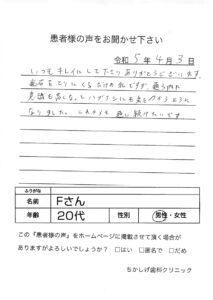 患者様の声をお聞かせ下さい
令和 5 年 4 月 3 日
いつもキレイにして下さりありがとうございます。
歯石をとりにくるだけの私ですが、通う内に
意識も高くなってハブラシにも気をつかうように
なりました。これからも通い続けたいです
ふりがな
名前 Fさん
年齢 20代 性別 男性・女性
この『患者様の声』をホームページに掲載させて頂く場合が
ありますがよろしいでしょうか? □はい □匿名で □だめ
ちかしげ歯科クリニック